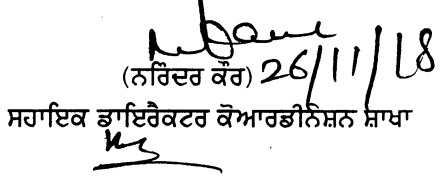 (ਨਰਿੰਦਰ ਕੌਰ) 26/11/18
ਸਹਾਇਕ ਡਾਇਰੈਕਟਰ ਕੋਆਰਡੀਨੇਸ਼ਨ ਸ਼ਾਖਾ